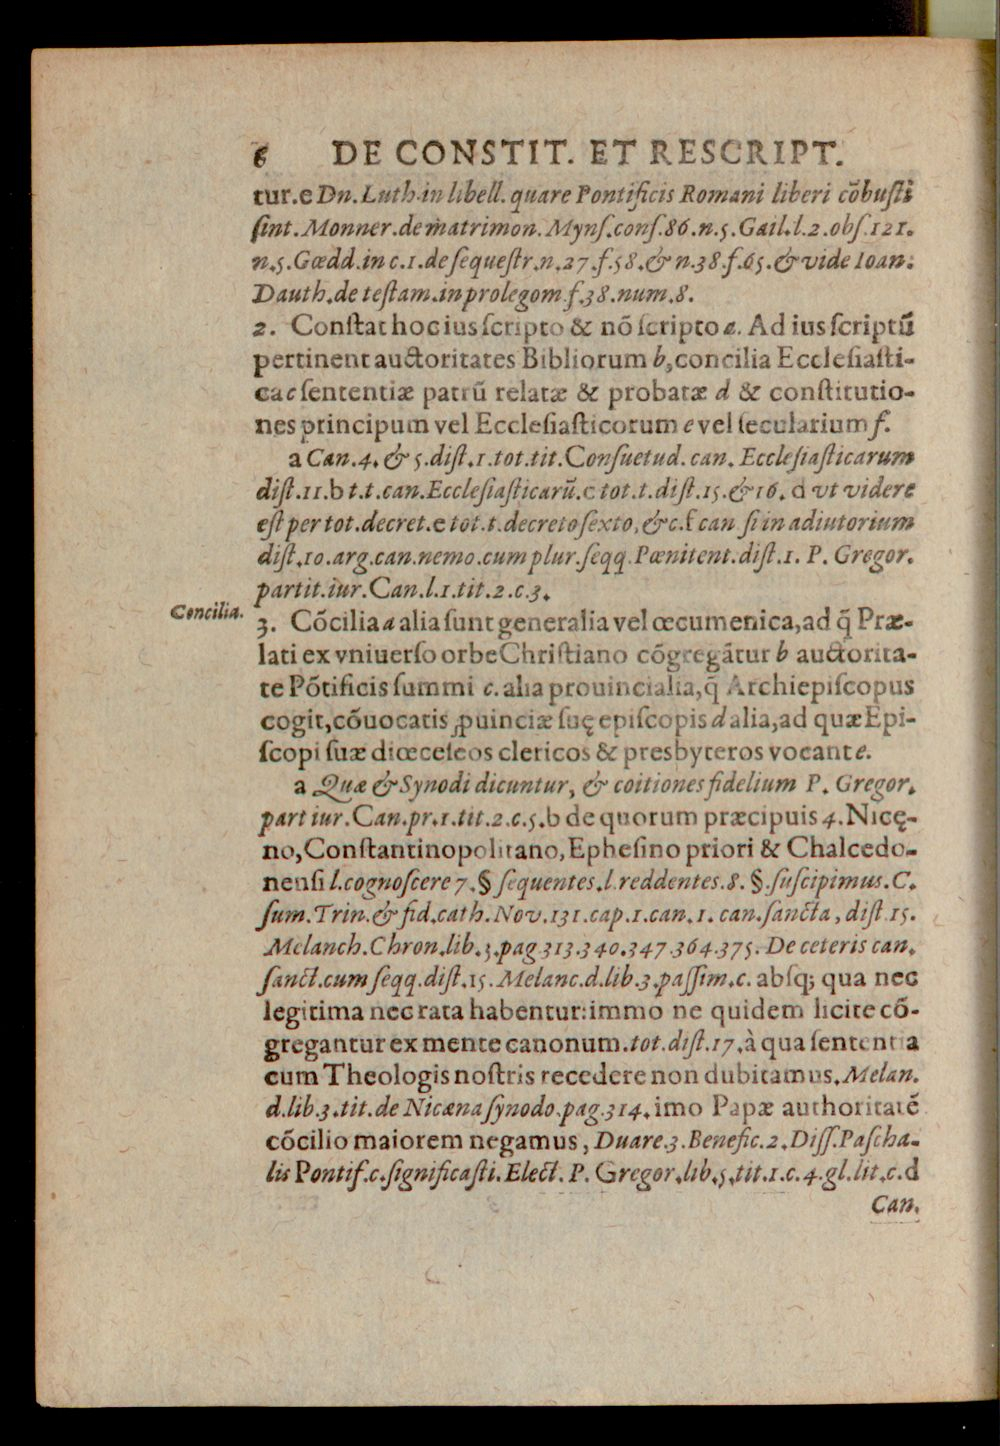 6 DE CONSTIT. ET RESCRIPT.
tur.e Dn. Luth.in libell. quare Pontificis Romani liberi cõbusti
sint. Monner.de matrimon. Myns.cons.86.n.5.Gail.l.2.obs.121.
n.5.Gœdd.in c.1.de sequestr.n.27.f.58.& n.38.f.65.& vide Ioan.
Dauth.de testam.in prolegom.f.38.num.8.
2. Constat hoc ius scripto & nõ scripto a. Ad ius scriptũ
pertinent auctoritates Bibliorum b, concilia Ecclesiasti-
ca c sententiæ patrũ relatæ & probatæ d & constitutio-
nes principum vel Ecclesiasticorum e vel secularium f.
a Can.4.& 5.dist.1.tot.tit.Consuetud.can. Ecclesiasticarum
dist.11.b t.t.can.Ecclesiasticarũ.c tot.t.dist.15.&16. d vt videre
est per tot.decret.e tot.t.decreto sexto, &c.f can si in adiutorium
dist.10.arg.can.nemo.cum plur.seqq.Pœnitent.dist.1. P. Gregor.
partit.iur.Can.l.1.tit.2.c.3.
Concilia.
3. Cõcilia a alia sunt generalia vel œcumenica, ad q̃ Præ-
lati ex vniuerso orbe Christiano cõgregãtur b auctorita-
te Põtificis summi c. alia prouincialia, q̃ Archiepiscopus
cogit, cõuocatis ꝓuinciæ suę episcopis d alia, ad quæ Epi-
scopi suæ diœceseos clericos & presbyteros vocant e.
a Quæ & Synodi dicuntur, & coitiones fidelium P. Gregor.
part iur.Can.pr.1.tit.2.c.5.b de quorum præcipuis 4. Nicę-
no, Constantinopolitano, Ephesino priori & Chalcedo-
nensi l.cognoscere 7.§ sequentes.l.reddentes.8. §.suscipimus.C.
sum.Trin.& fid.cath.Nov.131.cap.1.can.1. can.sancta, dist.15.
Melanch.Chron.lib.3.pag.313.340.347.364.375. De ceteris can.
sanct.cum seqq.dist.15. Melanc.d.lib.3.passim.c. absq; qua nec
legitima nec rata habentur: immo ne quidem licite cõ-
gregantur ex mente canonum.tot.dist.17.à qua sententia
cum Theologis nostris recedere non dubitamus. Melan.
d.lib.3.tit.de Nicæna synodo.pag.314. imo Papæ authoritatẽ
cõcilio maiorem negamus, Duare.3.Benefic.2.Diss.Pascha-
lis Pontif.c.significasti.Elect. P. Gregor.lib.5.tit.1.c.4.gl.lit.c.d
Can.